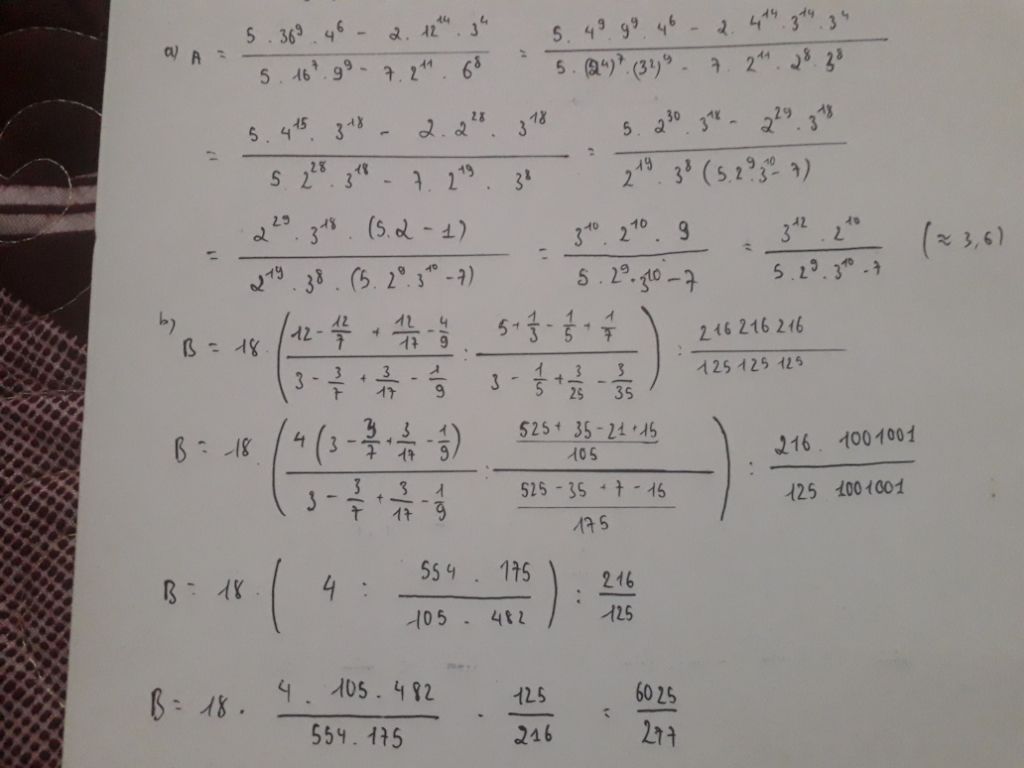 a) A = (5 . 36⁹ . 4⁶ - 2 . 12¹⁴ . 3⁴)/(5 . 16⁷ . 9⁹ - 7 . 2¹¹ . 6⁸) = (5 . 4⁹ . 9⁹ . 4⁶ - 2 . 4¹⁴ . 3¹⁴ . 3⁴)/(5 . (2⁴)⁷ . (3²)⁹ - 7 . 2¹¹ . 2⁸ . 3⁸)
= (5 . 4¹⁵ . 3¹⁸ - 2 . 2²⁸ . 3¹⁸)/(5 . 2²⁸ . 3¹⁸ - 7 . 2¹⁹ . 3⁸) = (5 . 2³⁰ . 3¹⁸ - 2²⁹ . 3¹⁸)/(2¹⁹ . 3⁸ (5 . 2⁹ . 3¹⁰ - 7))
= (2²⁹ . 3¹⁸ . (5 . 2 - 1))/(2¹⁹ . 3⁸ . (5 . 2⁹ . 3¹⁰ - 7)) = (3¹⁰ . 2¹⁰ . 9)/(5 . 2⁹ . 3¹⁰ - 7) = (3¹² . 2¹⁰)/(5 . 2⁹ . 3¹⁰ - 7) (≈ 3,6)
b) B = 18 . ((12 - 12/7 + 12/17 - 4/9)/(3 - 3/7 + 3/17 - 1/9) : (5 + 1/3 - 1/5 + 1/7)/(3 - 1/5 + 3/25 - 3/35)) : 216 216 216/125 125 125
B = 18 . (4 (3 - 3/7 + 3/17 - 1/9)/(3 - 3/7 + 3/17 - 1/9) : ((525 + 35 - 21 + 15)/105)/((525 - 35 + 7 - 15)/175)) : (216 . 1001001)/(125 . 1001001)
B = 18 . (4 : (554 . 175)/(105 . 482)) : 216/125
B = 18 . (4 . 105 . 482)/(554 . 175) . 125/216 = 6025/277